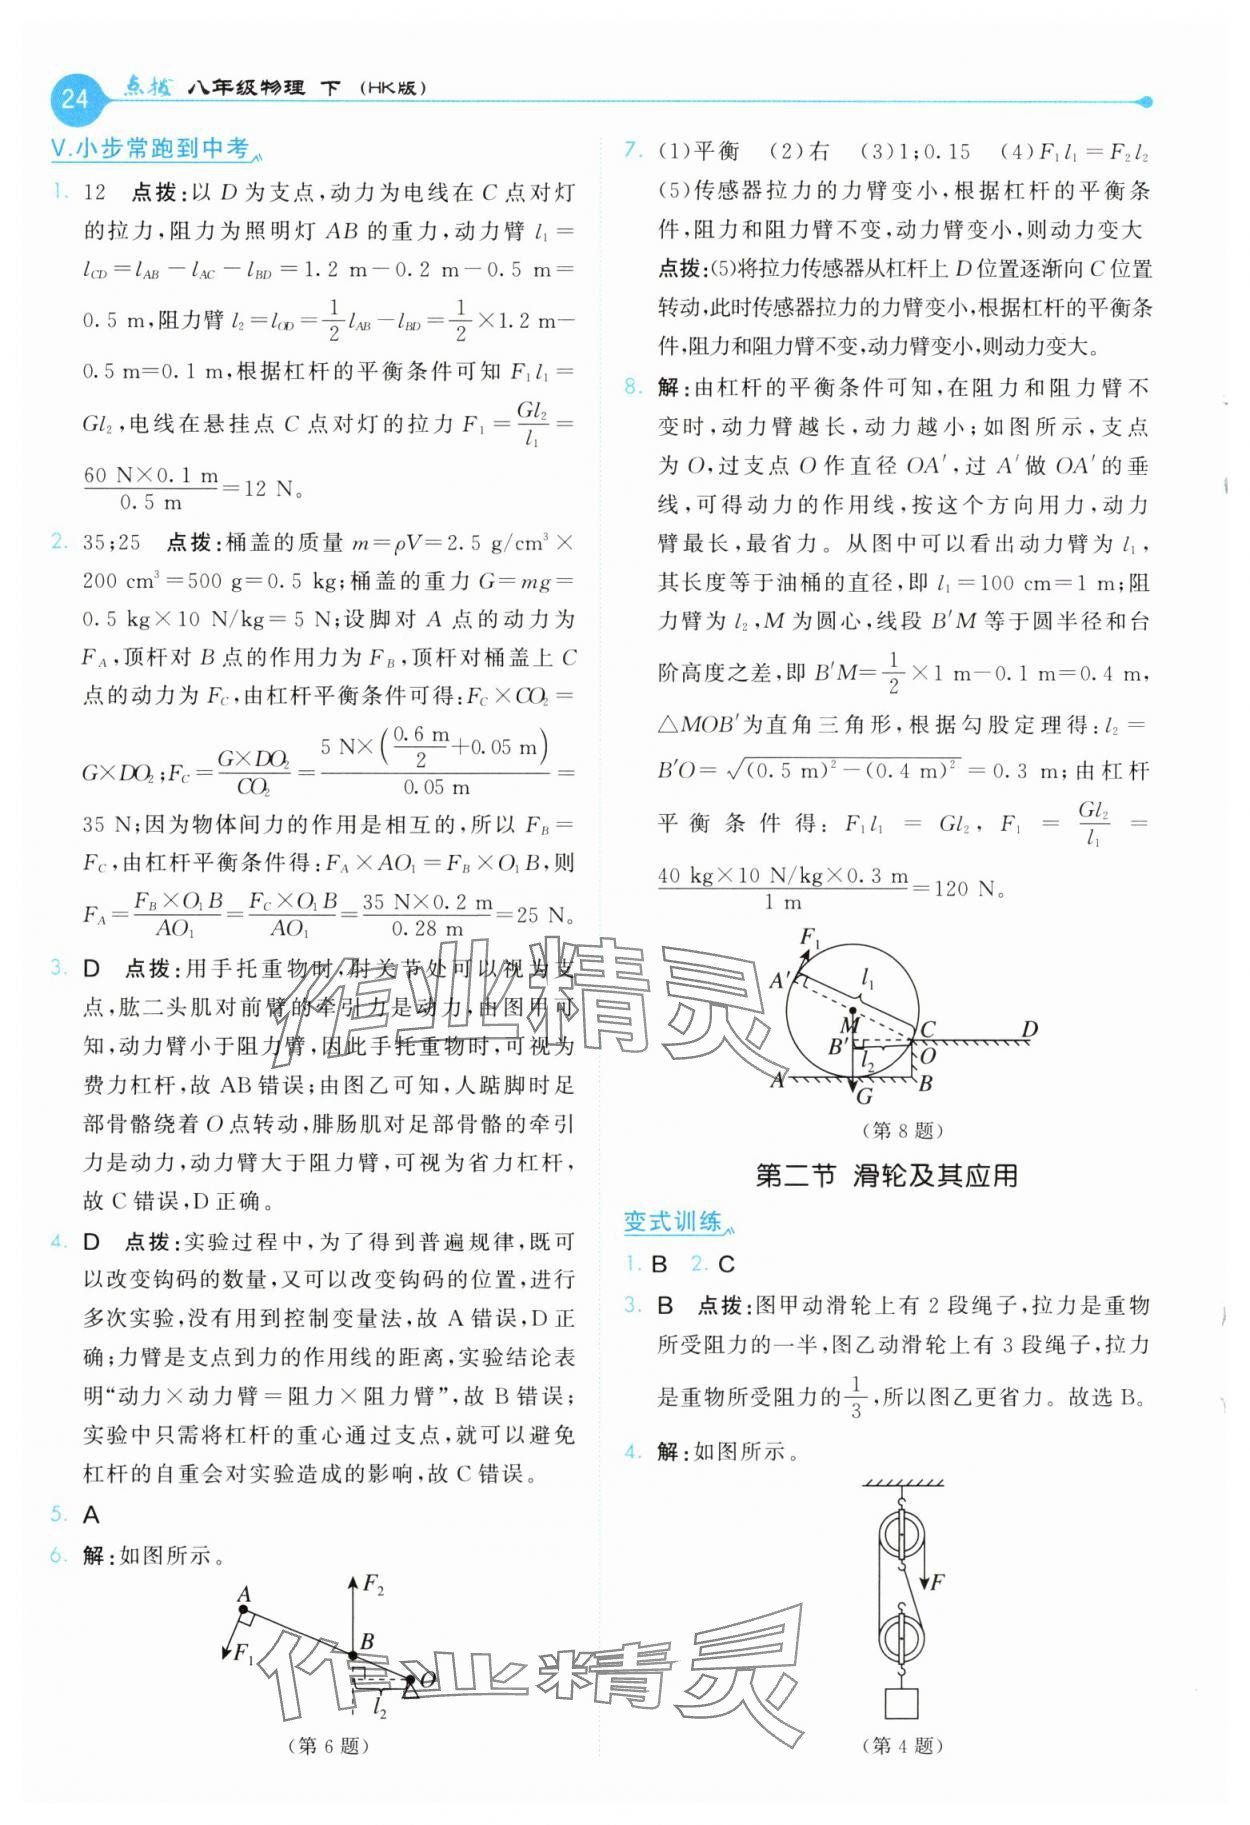 24 点拨 八年级物理 下 (HK版)
V.小步常跑到中考
1. 12 点拨:以 D 为支点,动力为电线在 C 点对灯
的拉力,阻力为照明灯 AB 的重力,动力臂 l₁=
l_CD=l_AB-l_AC-l_BD=1.2 m-0.2 m-0.5 m=
0.5 m,阻力臂 l₂=l_OD=1/2 l_AB-l_BD=1/2×1.2 m-
0.5 m=0.1 m,根据杠杆的平衡条件可知 F₁l₁=
Gl₂,电线在悬挂点 C 点对灯的拉力 F₁=Gl₂/l₁=
60 N×0.1 m/0.5 m=12 N。
2. 35;25 点拨:桶盖的质量 m=ρV=2.5 g/cm³×
200 cm³=500 g=0.5 kg;桶盖的重力 G=mg=
0.5 kg×10 N/kg=5 N;设脚对 A 点的动力为
F_A,顶杆对 B 点的作用力为 F_B,顶杆对桶盖上 C
点的动力为 F_C,由杠杆平衡条件可得:F_C×CO₂=
G×DO₂;F_C=G×DO₂/CO₂=5 N×(0.6 m/2+0.05 m)/0.05 m=
35 N;因为物体间力的作用是相互的,所以 F_B=
F_C,由杠杆平衡条件得:F_A×AO₁=F_B×O₁B,则
F_A=F_B×O₁B/AO₁=F_C×O₁B/AO₁=35 N×0.2 m/0.28 m=25 N。
3. D 点拨:用手托重物时,肘关节处可以视为支
点,肱二头肌对前臂的牵引力是动力,由图甲可
知,动力臂小于阻力臂,因此手托重物时,可视为
费力杠杆,故 AB 错误;由图乙可知,人踮脚时足
部骨骼绕着 O 点转动,腓肠肌对足部骨骼的牵引
力是动力,动力臂大于阻力臂,可视为省力杠杆,
故 C 错误,D 正确。
4. D 点拨:实验过程中,为了得到普遍规律,既可
以改变钩码的数量,又可以改变钩码的位置,进行
多次实验,没有用到控制变量法,故 A 错误,D 正
确;力臂是支点到力的作用线的距离,实验结论表
明“动力×动力臂=阻力×阻力臂”,故 B 错误;
实验中只需将杠杆的重心通过支点,就可以避免
杠杆的自重会对实验造成的影响,故 C 错误。
5. A
6. 解:如图所示。
A F₂ F₁ B O l₂
(第 6 题)
7. (1)平衡 (2)右 (3)1;0.15 (4)F₁l₁=F₂l₂
(5)传感器拉力的力臂变小,根据杠杆的平衡条
件,阻力和阻力臂不变,动力臂变小,则动力变大
点拨:(5)将拉力传感器从杠杆上 D 位置逐渐向 C 位置
转动,此时传感器拉力的力臂变小,根据杠杆的平衡条
件,阻力和阻力臂不变,动力臂变小,则动力变大。
8. 解:由杠杆的平衡条件可知,在阻力和阻力臂不
变时,动力臂越长,动力越小;如图所示,支点
为 O,过支点 O 作直径 OA′,过 A′做 OA′的垂
线,可得动力的作用线,按这个方向用力,动力
臂最长,最省力。从图中可以看出动力臂为 l₁,
其长度等于油桶的直径,即 l₁=100 cm=1 m;阻
力臂为 l₂,M 为圆心,线段 B′M 等于圆半径和台
阶高度之差,即 B′M=1/2×1 m-0.1 m=0.4 m,
△MOB′为直角三角形,根据勾股定理得:l₂=
B′O=√((0.5 m)²-(0.4 m)²)=0.3 m;由杠杆
平衡条件得:F₁l₁=Gl₂,F₁=Gl₂/l₁=
40 kg×10 N/kg×0.3 m/1 m=120 N。
F₁ A′ l₁ M C D B′ O l₂ A G B
(第 8 题)
第二节 滑轮及其应用
变式训练
1. B 2. C
3. B 点拨:图甲动滑轮上有 2 段绳子,拉力是重物
所受阻力的一半,图乙动滑轮上有 3 段绳子,拉力
是重物所受阻力的1/3,所以图乙更省力。故选 B。
4. 解:如图所示。
F
(第 4 题)
作业精灵
作业精灵